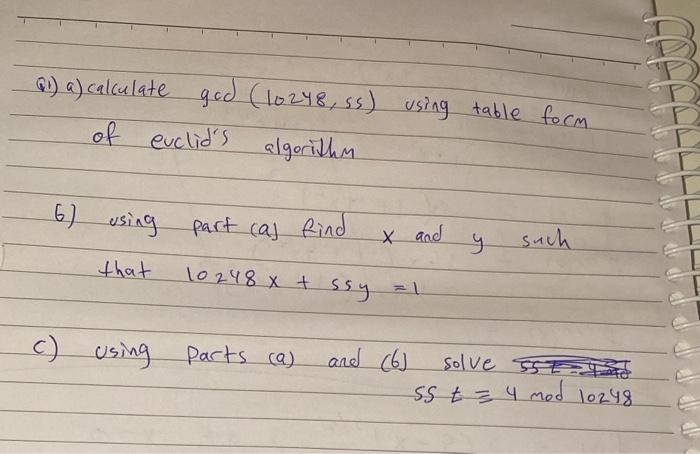 Q1) a) calculate gcd (10248, 55) using table form
of euclid's algorithm
b) using part (a) find x and y such
that 10248x + 55y = 1
c) using parts (a) and (b) solve
55 t ≡ 4 mod 10248